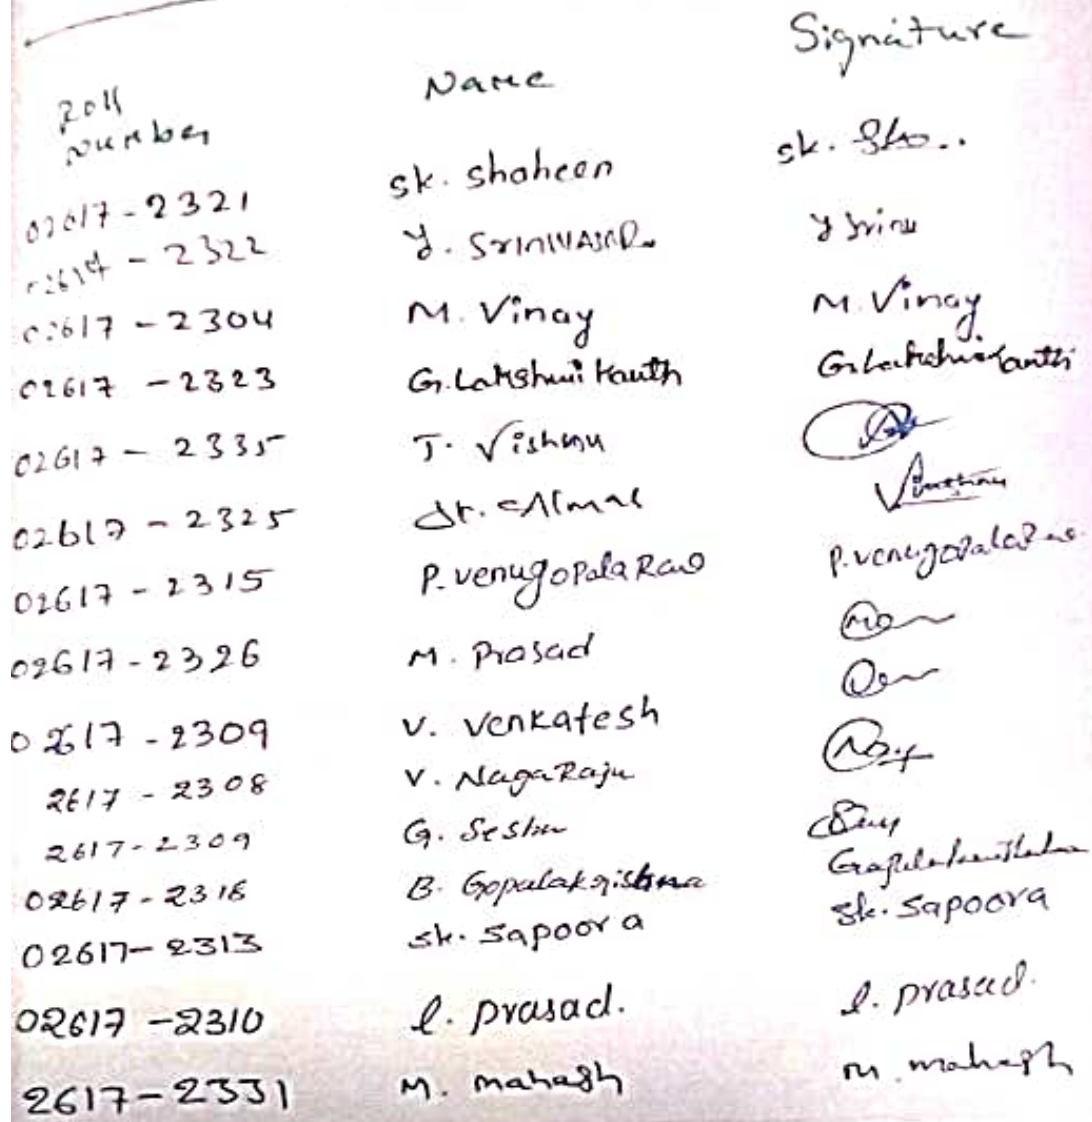 Roll Number Name Signature
02617-2321 sk. shaheen sk. Sha..
02617 - 2322 Y. SrINIVASARO Y Srinu
02617 - 2304 M. Vinay M. Vinay
02617 - 2323 G. Lakshmi Kanth G. Lakshmi Kanth
02617 - 2335 T. Vishnu
02617 - 2325
02617 - 2315 P. venugopala Rao P. venugopala Rao
02617 - 2326 M. Prasad
02617 - 2309 V. Venkatesh
2617 - 2308 V. NagaRaju
2617 - 2309 G. Seshu
02617 - 2316 B. Gopalakrishna Gopalakrishna
02617 - 2313 sk. sapoora sk. sapoora
02617 - 2310 l. prasad. l. prasad.
2617 - 2331 M. mahesh m. mahesh